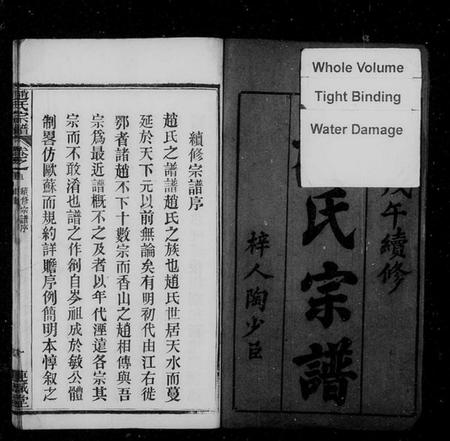 Whole Volume
Tight Binding
Water Damage
戊午續修
氏宗譜
梓人陶少臣
續修宗譜序
趙氏之譜譜趙氏之族也趙氏世居天水而蔓
延於天下元以前無論矣有明初代由江右徙
鄂者諸趙不下十數宗而香山之趙相傳與吾
宗為最近譜概不之及者以年代湮遠各宗其
宗而不敢淆也譜之作剏自岑祖成於敏公體
制畧仿歐蘇而規約詳贍序例簡明本惇敘之
趙氏宗譜
卷之一
續修宗譜序